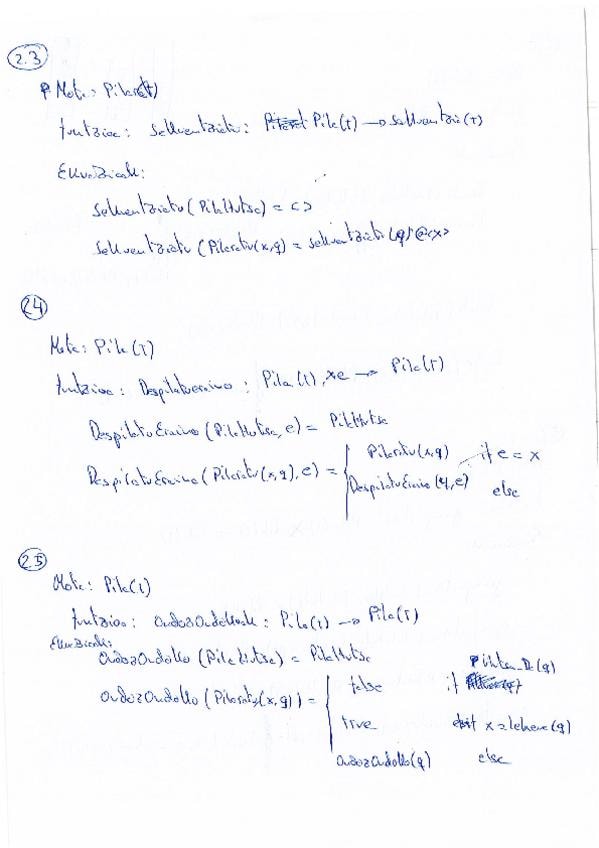 2.3
Mota: Pila(t)
funtzioa: Sekuentziatu: Pila(T) → Sekuentzia(T)
Ekuazioak:
Sekuentziatu(PilaHutsa) = < >
Sekuentziatu(Pilaratu(x,q)) = Sekuentziatu(q) @ <x>
2.4
Mota: Pila(T)
funtzioa: DespilatuEraino: Pila(T), e → Pila(T)
DespilatuEraino(PilaHutsa, e) = PilaHutsa
DespilatuEraino(Pilaratu(x,q), e) = Pilaratu(x,q) if e = x
DespilatuEraino(q,e) else
2.5
Mota: Pila(t)
funtzioa: ondozondokoak: Pila(t) → Pila(T)
Ekuazioak:
ondozondoko(PilaHutsa) = PilaHutsa
ondozondoko(Pilaratu(x,q)) = false if PilaHutsa_Da(q)
true x = lehena(q)
ondozondoko(q) else